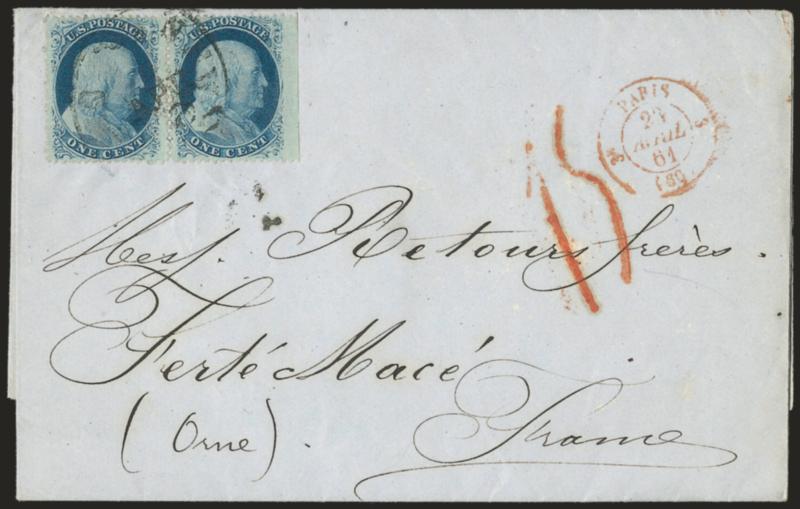 U.S. POSTAGE
ONE CENT
U.S. POSTAGE
ONE CENT
PARIS
AVRIL
61
(60)
15
Mess. Retours frères.
Ferté Macé
(Orne).
France